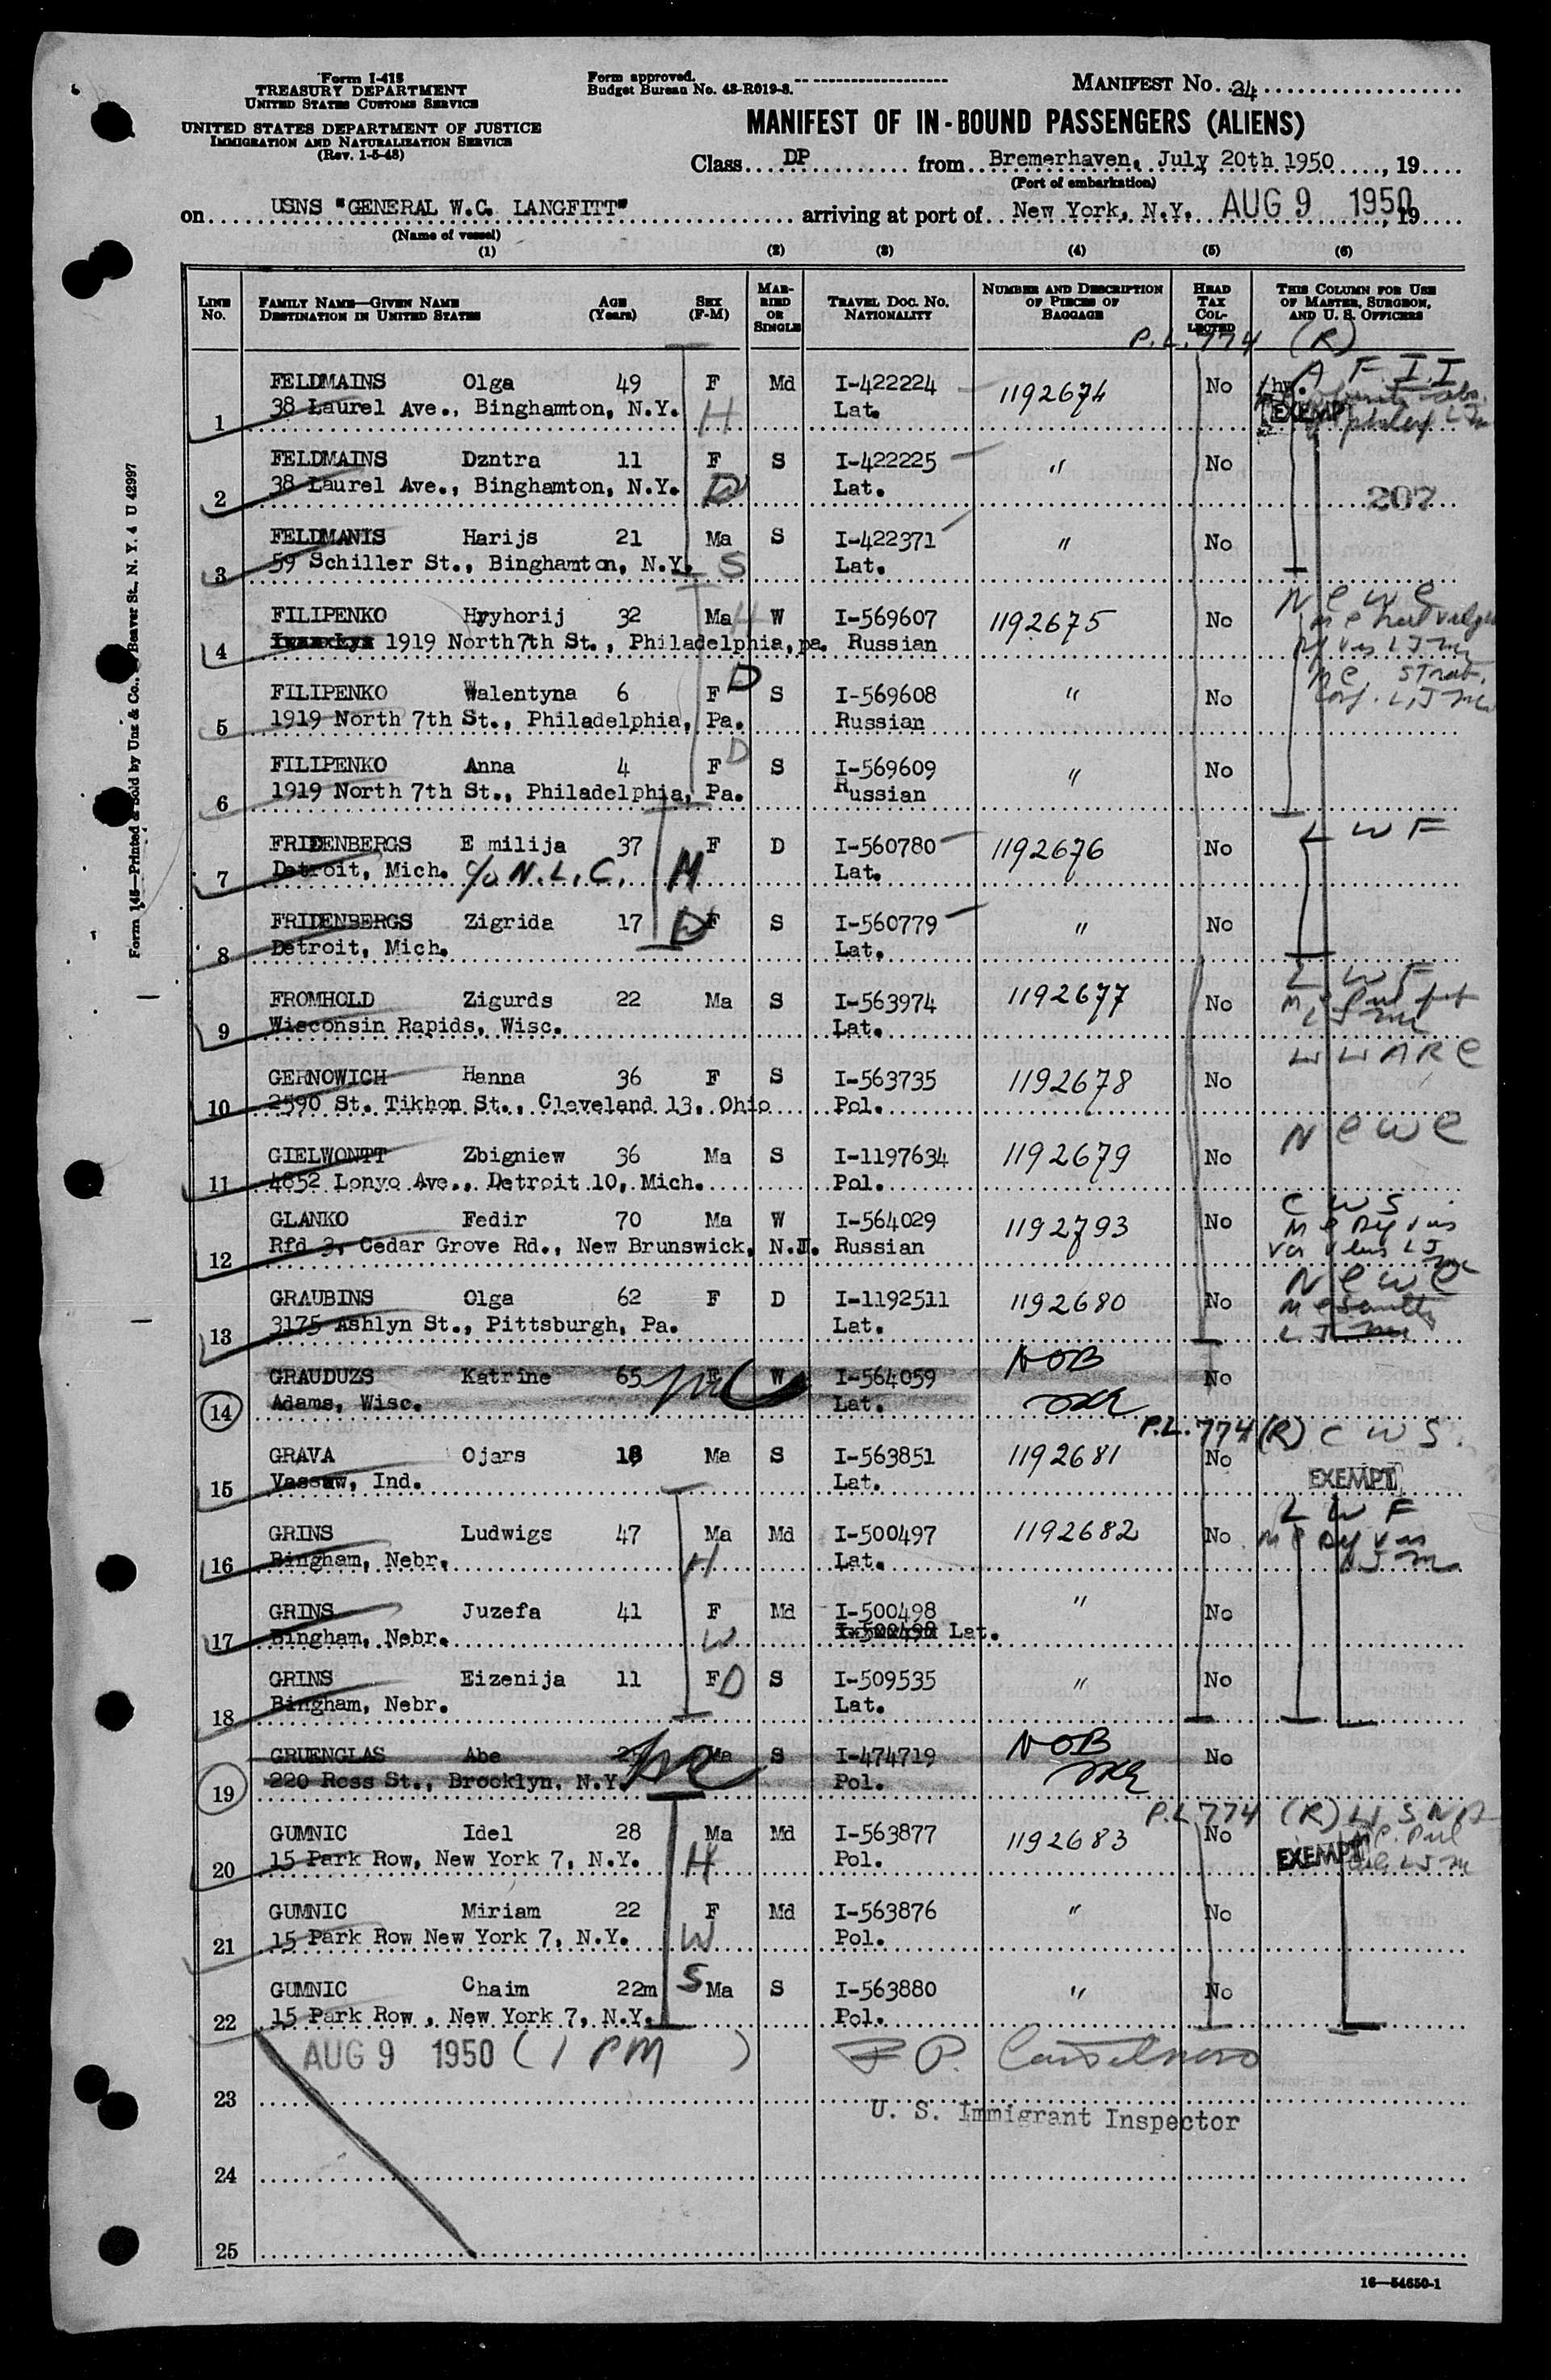 Form I-418
TREASURY DEPARTMENT
UNITED STATES CUSTOMS SERVICE
UNITED STATES DEPARTMENT OF JUSTICE
IMMIGRATION AND NATURALIZATION SERVICE
(Rev. 1-5-48)
Form approved.
Budget Bureau No. 43-R019-3.
MANIFEST No. 34
MANIFEST OF IN-BOUND PASSENGERS (ALIENS)
Class DP from Bremerhaven, July 20th 1950, 19
(Port of embarkation)
on USNS "GENERAL W.C. LANGFITT" arriving at port of New York, N.Y. AUG 9 1950, 19
(Name of vessel)
(1) (2) (3) (4) (5) (6)
LINE No. FAMILY NAME—GIVEN NAME DESTINATION IN UNITED STATES AGE (Years) SEX (F-M) MARRIED OR SINGLE TRAVEL DOC. NO. NATIONALITY NUMBER AND DESCRIPTION OF PIECES OF BAGGAGE HEAD TAX COLLECTED THIS COLUMN FOR USE OF MASTER, SURGEON, AND U. S. OFFICERS
P.L. 774 (R)
FELDMAINS Olga 49 F Md I-422224 1192674 No A F I I
1 38 Laurel Ave., Binghamton, N.Y. H Lat. EXEMPT
FELDMAINS Dzntra 11 F S I-422225 " No
2 38 Laurel Ave., Binghamton, N.Y. D Lat. 207
FELDMANIS Harijs 21 Ma S I-422371 " No
3 59 Schiller St., Binghamton, N.Y. S Lat.
FILIPENKO Hryhorij 32 Ma H W I-569607 1192675 No N C W C
4 1919 North 7th St., Philadelphia, pa. Russian
FILIPENKO Walentyna 6 F D S I-569608 " No
5 1919 North 7th St., Philadelphia, Pa. Russian
FILIPENKO Anna 4 F D S I-569609 " No
6 1919 North 7th St., Philadelphia, Pa. Russian
FRIDENBERGS E milija 37 F D I-560780 1192676 No L W F
7 Detroit, Mich. c/o N.L.C. M Lat.
FRIDENBERGS Zigrida 17 F D S I-560779 " No
8 Detroit, Mich. Lat.
FROMHOLD Zigurds 22 Ma S I-563974 1192677 No L W F
9 Wisconsin Rapids, Wisc. Lat.
GERNOWICH Hanna 36 F S I-563735 1192678 No W W A R C
10 2590 St. Tikhon St., Cleveland 13, Ohio Pol.
GIELWONTT Zbigniew 36 Ma S I-1197634 1192679 No N C W C
11 4852 Lonyo Ave., Detroit 10, Mich. Pol.
GLANKO Fedir 70 Ma W I-564029 1192793 No C W S
12 Rfd 3, Cedar Grove Rd., New Brunswick, N.J. Russian
GRAUBINS Olga 62 F D I-1192511 1192680 No N C W C
13 3175 Ashlyn St., Pittsburgh, Pa. Lat.
GRAUDUZS Katrine 65 F W I-564059 NOB No
14 Adams, Wisc. Lat.
P.L. 774 (R) C W S.
GRAVA Ojars 18 Ma S I-563851 1192681 No
15 Vassaw, Ind. Lat. EXEMPT
GRINS Ludwigs 47 Ma Md I-500497 1192682 No L W F
16 Bingham, Nebr. H Lat.
GRINS Juzefa 41 F Md I-500498 " No
17 Bingham, Nebr. W Lat.
GRINS Eizenija 11 F D S I-509535 " No
18 Bingham, Nebr. Lat.
GRUENGLAS Abe Ma S I-474719 NOB No
19 220 Ross St., Brooklyn, N.Y. Pol.
P.L. 774 (R) U S N A
GUMNIC Idel 28 Ma Md I-563877 1192683 No
20 15 Park Row, New York 7, N.Y. H Pol. EXEMPT
GUMNIC Miriam 22 F Md I-563876 " No
21 15 Park Row New York 7, N.Y. W Pol.
GUMNIC Chaim 22m S Ma S I-563880 " No
22 15 Park Row, New York 7, N.Y. Pol.
AUG 9 1950 (1 PM)
23
U. S. Immigrant Inspector
24
25
16—54650-1
Form 145—Printed & Sold by Unz & Co., Beaver St., N. Y. 4 U 42997